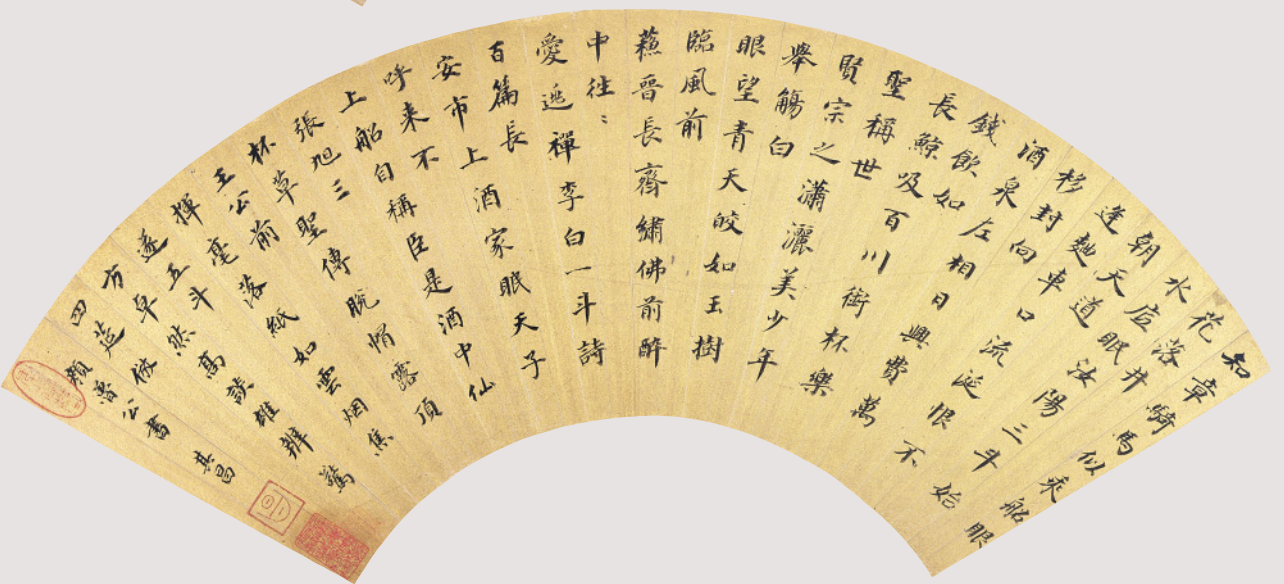 知章騎馬似乘船眼
花落井
水底眠汝陽三斗始
朝天道
逢麴車口流涎恨不
移封向
酒泉左相日興費萬
錢飲如
長鯨吸百川銜杯樂
聖稱世
賢宗之瀟灑美少年
舉觴白
眼望青天皎如玉樹
臨風前
蘇晉長齋繡佛前醉
中往〻
愛逃禪李白一斗詩
百篇長
安市上酒家眠天子
呼来不
上船自稱臣是酒中仙
張旭三
杯草聖傳脫帽露頂
王公前
揮毫落紙如雲烟焦
遂五斗
方卓然高談雄辨驚
四筵倣
顏魯公書 其昌